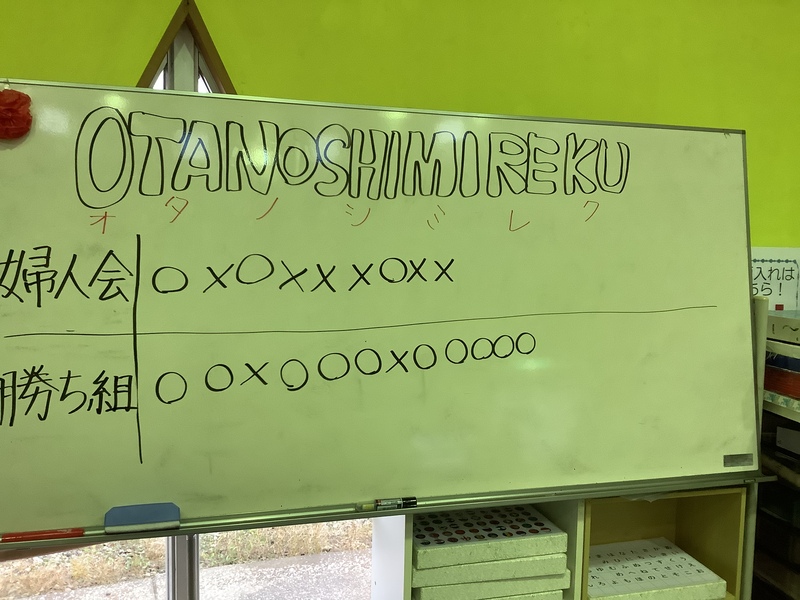 OTANOSHIMI REKU
オタノシミレク
婦人会 ○×○×××○××
勝ち組 ○○×○○○×○○○○○
入れは
ちら!